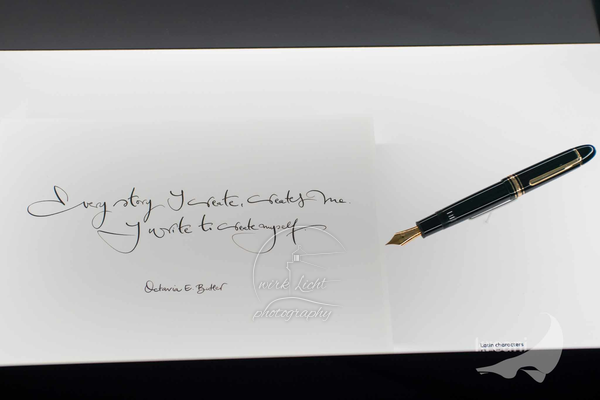 Every story I create, creates me.
I write to create myself
Octavia E. Butler
wirk Licht
photography
Latin characters